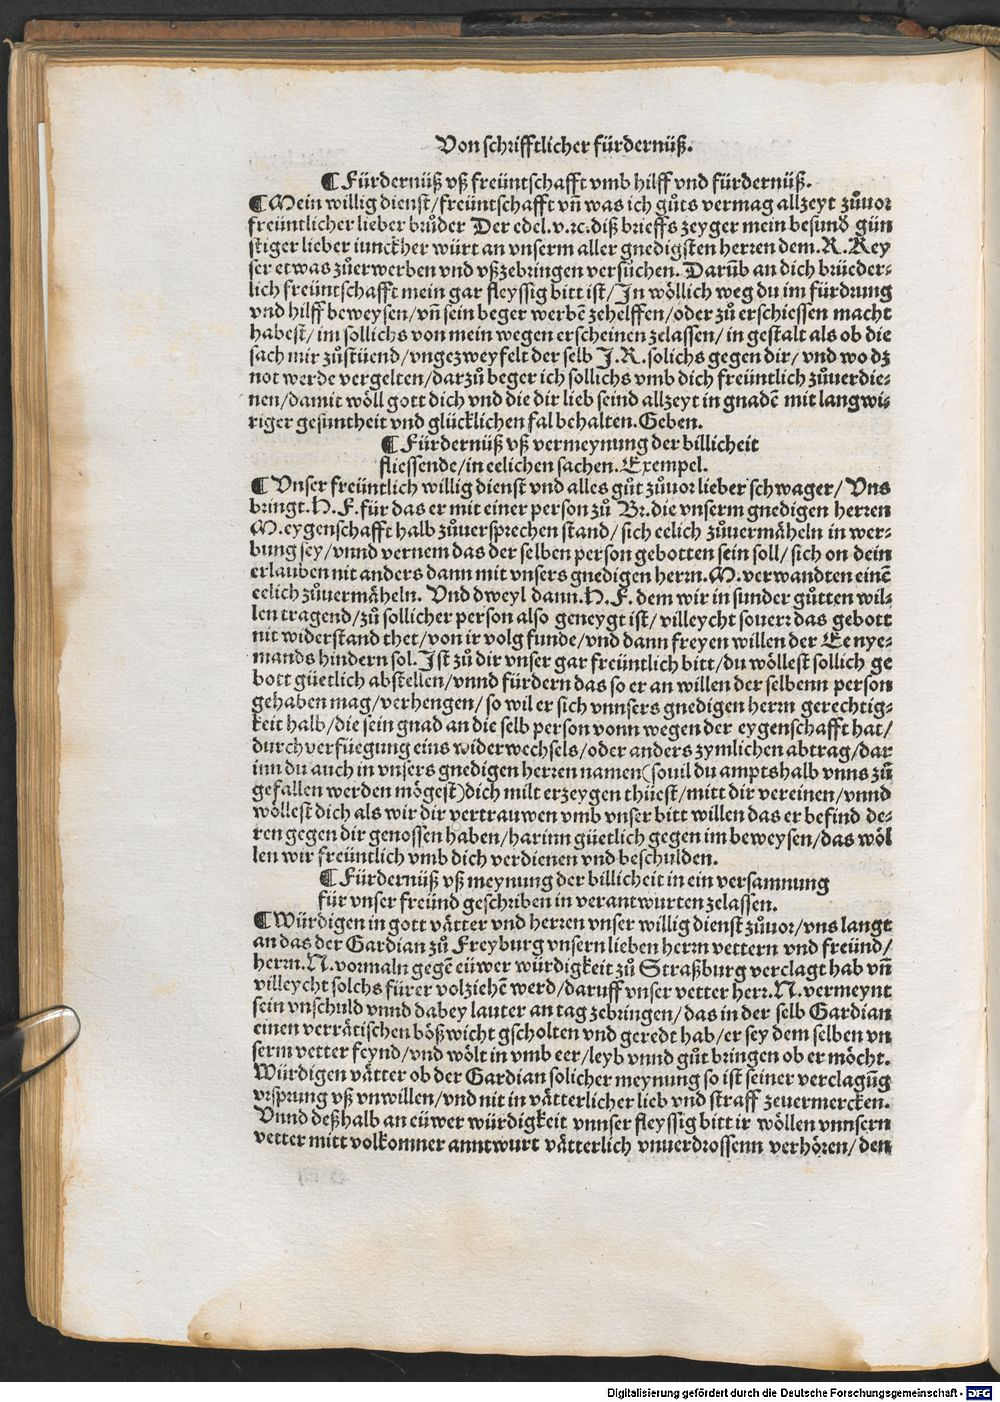 Von schrifftlicher fürdernüß.
¶ Fürdernüß vß freüntschafft vmb hilff vnd fürdernüß.
¶ Mein willig dienst/freüntschafft vn̄ was ich gůts vermag allzeyt zůuor
freüntlicher lieber brůder Der edel.v.ꝛc.diß brieffs zeyger mein besund̕ gün
stiger lieber iunckher würt an vnserm aller gnedigsten herren dem.R.Key
ser etwas zůerwerben vnd vßzebringen versůchen. Darūb an dich brüeder⸗
lich freüntschafft mein gar fleyssig bitt ist/In wöllich weg du im fürdrung
vnd hilff beweysen/vn̄ sein beger werbē zehelffen/oder zů erschiessen macht
habest/im sollichs von mein wegen erscheinen zelassen/in gestalt als ob die
sach mir zůstüend/vngezweyfelt der selb J.R.solichs gegen dir/vnd wo dz
not werde vergelten/darzů beger ich sollichs vmb dich freüntlich zůuerdie⸗
nen/damit wöll gott dich vnd die dir lieb seind allzeyt in gnadē mit langwi⸗
riger gesuntheit vnd glücklichen fal behalten.Geben.
¶ Fürdernüß vß vermeynung der billicheit
fliessende/in eelichen sachen.Exempel.
¶ Vnser freüntlich willig dienst vnd alles gůt zůuor lieber schwager/Vns
bringt.H.F.für das er mit einer person zů Br.die vnserm gnedigen herren
M.eygenschafft halb zůuersprechen stand/sich eelich zůuermäheln in wer⸗
bung sey/vnnd vernem das der selben person gebotten sein soll/sich on dein
erlauben nit anders dann mit vnsers gnedigen herrn.M.verwandten einē
eelich zůuermäheln. Vnd dweyl dann.H.F.dem wir in sunder gůtten wil⸗
len tragend/zů sollicher person also geneygt ist/villeycht souerꝛ das gebott
nit widerstand thet/von ir volg funde/vnd dann freyen willen der Ee nye⸗
mands hindern sol.Ist zů dir vnser gar freüntlich bitt/du wöllest sollich ge
bott güetlich abstellen/vnnd fürdern das so er an willen der selbenn person
gehaben mag/verhengen/so wil er sich vnnsers gnedigen herrn gerechtig⸗
keit halb/die sein gnad an die selb person vonn wegen der eygenschafft hat/
durch verfüegung eins widerwechsels/oder anders zymlichen abtrag/dar
inn du auch in vnsers gnedigen herren namen(souil du amptshalb vnns zů
gefallen werden mögest)dich milt erzeygen thüest/mitt dir vereinen/vnnd
wöllest dich als wir dir vertrauwen vmb vnser bitt willen das er befind de⸗
ren gegen dir genossen haben/harinn güetlich gegen im beweysen/das wöl
len wir freüntlich vmb dich verdienen vnd beschulden.
¶ Fürdernüß vß meynung der billicheit in ein versamnung
für vnser freünd geschriben in verantwurten zelassen.
¶ Würdigen in gott vätter vnd herren vnser willig dienst zůuor/vns langt
an das der Gardian zů Freyburg vnsern lieben herrn vettern vnd freünd/
herrn.N.vormaln gegē eüwer würdigkeit zů Straßburg verclagt hab vn̄
villeycht solchs fürer volziehē werd/daruff vnser vetter herꝛ.N.vermeynt
sein vnschuld vnnd dabey lauter an tag zebringen/das in der selb Gardian
einen verrätischen bößwicht gscholten vnd geredt hab/er sey dem selben vn
serm vetter feynd/vnd wölt in vmb eer/leyb vnnd gůt bringen ob er möcht.
Würdigen vätter ob der Gardian solicher meynung so ist seiner verclagūg
vrsprung vß vnwillen/vnd nit in vätterlicher lieb vnd straff zeuermercken.
Vnnd deßhalb an eüwer würdigkeit vnnser fleyssig bitt ir wöllen vnnsern
vetter mitt volkomner anntwurt vätterlich vnuerdrossenn verhören/den
Digitalisierung gefördert durch die Deutsche Forschungsgemeinschaft - DFG